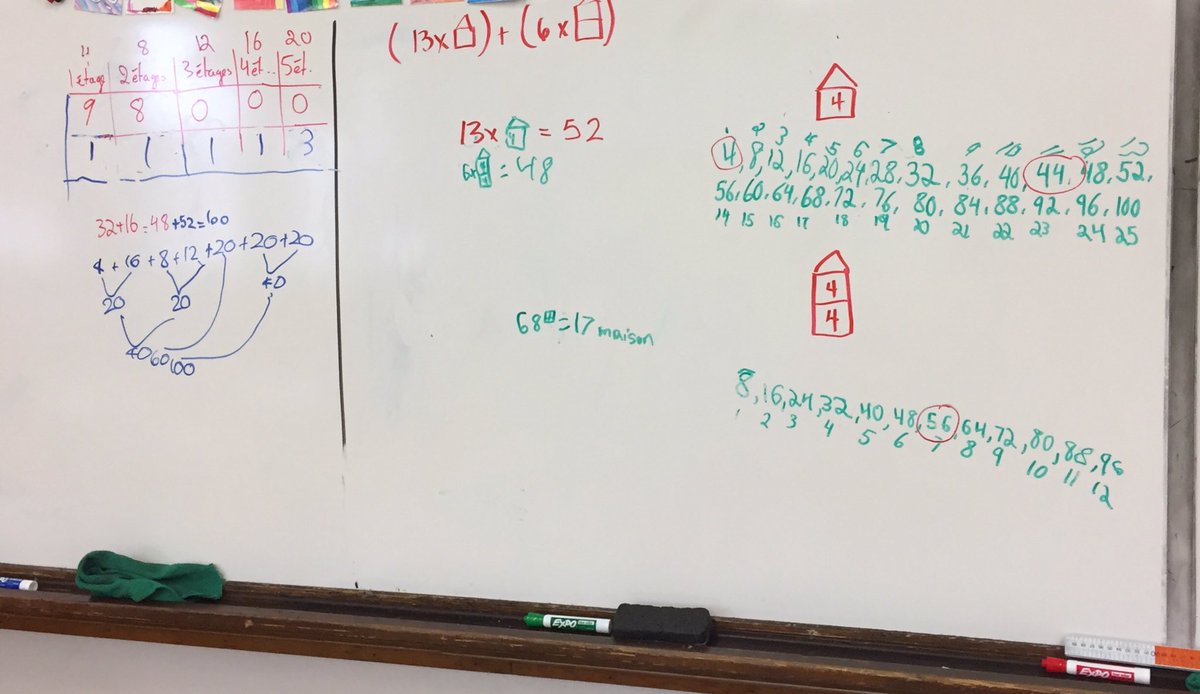 4 8 12 16 20
1 étage 2 étages 3 étages 4 ét.. 5 ét.
9 8 0 0 0
1 1 1 1 3
32+16=48+52=60
4+16+8+12+20+20+20
20 20 40
40 60 100
(13x)+(6x)
13x 4 = 52
6x 4 4 = 48
68 = 17 maison
4
1 2 3 4 5 6 7 8 9 10 11 12 13
4, 8, 12, 16, 20, 24, 28, 32, 36, 40, 44, 48, 52,
56, 60, 64, 68, 72, 76, 80, 84, 88, 92, 96, 100
14 15 16 17 18 19 20 21 22 23 24 25
4
4
8, 16, 24, 32, 40, 48, 56, 64, 72, 80, 88, 96
1 2 3 4 5 6 7 8 9 10 11 12
EXPO
EXPO